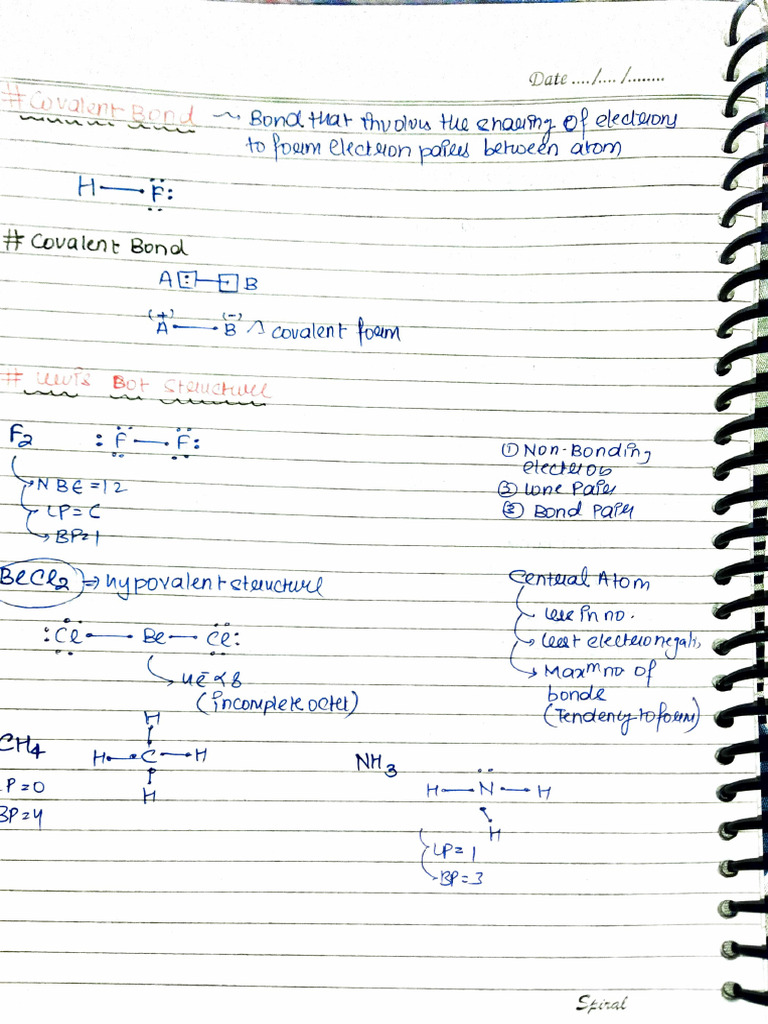 Date ..../..../........
# Covalent Bond ~ Bond that involvs the sharing of electrons
to form electron paires between atom
H — F:
# Covalent Bond
A : — · B
(+) (-)
A — B covalent form
# Lewis Dot Structure
F2 :F — F:
① Non-Bonding
electrons
NBE = 12
③ Lone Pair
LP = 6
② Bond Pair
BP = 1
BeCl2 ⇒ hypovalent structure
Central Atom
less in no.
:Cl — Be — Cl:
least electronegati
4e⁻ < 8
Maxᵐ no of
(incomplete octet)
bonds
(Tendency to form)
H
CH4 H — C — H
H
NH3
LP = 0
H — N — H
BP = 4
H
LP = 1
BP = 3
Spiral